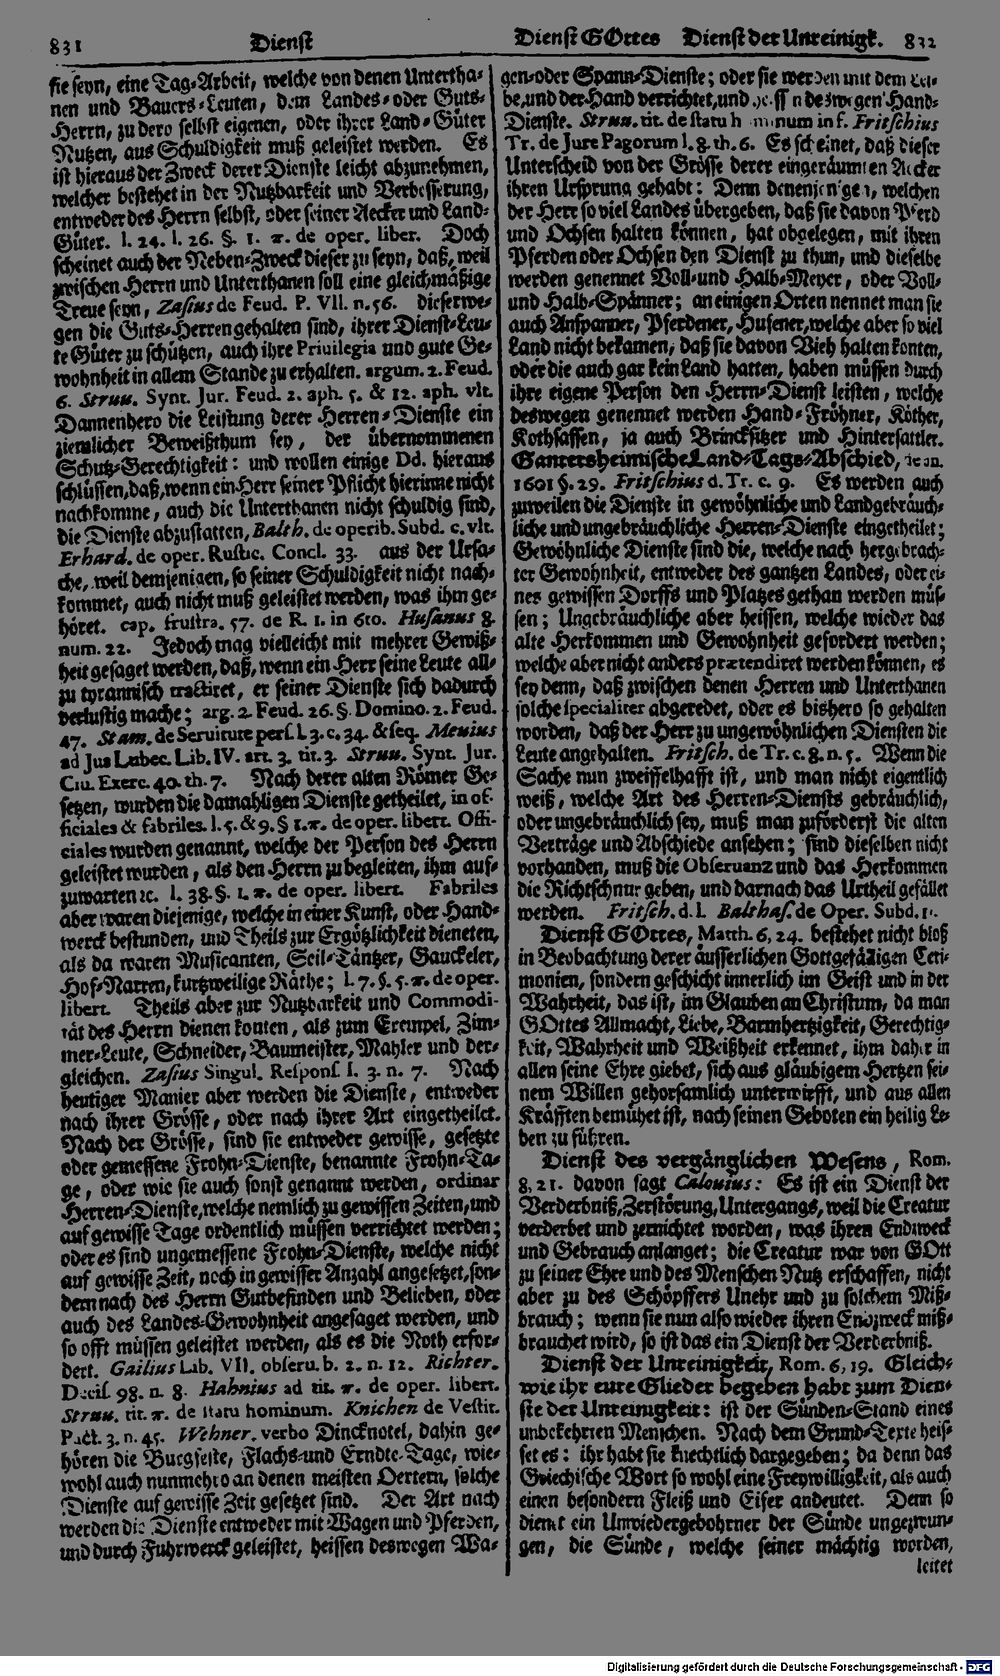 831 Dienst
Dienst GOttes Dienst der Unreinigk. 832
sie seyn, eine Tag-Arbeit, welche von denen Untertha-
nen und Bauers-Leuten, dem Landes- oder Guts-
Herrn, zu dero selbst eigenen, oder ihrer Land-Güter
Nutzen, aus Schuldigkeit muß geleistet werden. Es
ist hieraus der Zweck derer Dienste leicht abzunehmen,
welcher bestehet in der Nutzbarkeit und Verbesserung,
entweder des Herrn selbst, oder seiner Aecker und Land-
Güter. l. 24. l. 26. §. 1. π. de oper. liber. Doch
scheinet auch der Neben-Zweck dieser zu seyn, daß, weil
zwischen Herrn und Unterthanen soll eine gleichmäßige
Treue seyn, Zasius de Feud. P. VII. n. 56. dieserwe-
gen die Guts-Herren gehalten sind, ihrer Dienst-Leu-
te Güter zu schützen, auch ihre Priuilegia und gute Ge-
wohnheit in allem Stande zu erhalten. argum. 2. Feud.
6. Struu. Synt. Jur. Feud. 2. aph. 5. & 12. aph. vlt.
Dannenhero die Leistung derer Herren-Dienste ein
ziemlicher Beweißthum sey, der übernommenen
Schutz-Gerechtigkeit: und wollen einige Dd. hieraus
schlüssen, daß, wenn ein Herr seiner Pflicht hierinne nicht
nachkomme, auch die Unterthanen nicht schuldig sind,
die Dienste abzustatten, Balth. de operib. Subd. c. vlt.
Erhard. de oper. Rustic. Concl. 33. aus der Ursa-
che, weil demjenigen, so seiner Schuldigkeit nicht nach-
kommet, auch nicht muß geleistet werden, was ihm ge-
höret. cap. frustra. 57. de R. I. in 6to. Husanus 8.
num. 22. Jedoch mag vielleicht mit mehrer Gewiß-
heit gesaget werden, daß, wenn ein Herr seine Leute all-
zu tyrannisch tractiret, er seiner Dienste sich dadurch
verlustig mache; arg. 2. Feud. 26. §. Domino. 2. Feud.
47. Stam. de Seruitute pers. l. 3. c. 34. & seq. Meuius
ad Jus Lubec. Lib. IV. art. 3. tit. 3. Struu. Synt. Jur.
Ciu. Exerc. 40. th. 7. Nach derer alten Römer Ge-
setzen, wurden die damahligen Dienste getheilet, in of-
ficiales & fabriles. l. 5. & 9. § 1. π. de oper. libert. Offi-
ciales wurden genannt, welche der Person des Herrn
geleistet wurden, als den Herrn zu begleiten, ihm auf-
zuwarten ꝛc. l. 38. §. 1. π. de oper. libert. Fabriles
aber waren diejenige, welche in einer Kunst, oder Hand-
werck bestunden, und Theils zur Ergötzlichkeit dieneten,
als da waren Musicanten, Seil-Täntzer, Gauckeler,
Hof-Narren, kurtzweilige Räthe; l. 7. §. 5. π. de oper.
libert. Theils aber zur Nutzbarkeit und Commodi-
tät des Herrn dienen konten, als zum Exempel, Zim-
mer-Leute, Schneider, Baumeister, Mahler und der-
gleichen. Zasius Singul. Respons. l. 3. n. 7. Nach
heutiger Manier aber werden die Dienste, entweder
nach ihrer Grösse, oder nach ihrer Art eingetheilet.
Nach der Grösse, sind sie entweder gewisse, gesetzte
oder gemessene Frohn-Dienste, benannte Frohn-Ta-
ge, oder wie sie auch sonst genannt werden, ordinar
Herren-Dienste, welche nemlich zu gewissen Zeiten, und
auf gewisse Tage ordentlich müssen verrichtet werden;
oder es sind ungemessene Frohn-Dienste, welche nicht
auf gewisse Zeit, noch in gewisser Anzahl angesetzet, son-
dern nach des Herrn Gutbefinden und Belieben, oder
auch des Landes-Gewohnheit angesaget werden, und
so offt müssen geleistet werden, als es die Noth erfor-
dert. Gailius Lab. VII. obseru. b. 2. n. 12. Richter.
Decis. 98. n. 8. Hahnius ad tit. π. de oper. libert.
Struu. tit. π. de statu hominum. Knichen de Vestit.
Pact. 3. n. 45. Wehner. verbo Dincknotel, dahin ge-
hören die Burgfeste, Flachs- und Erndte-Tage, wie-
wohl auch nunmehro an denen meisten Oertern, solche
Dienste auf gewisse Zeit gesetzet sind. Der Art nach
werden die Dienste entweder mit Wagen und Pferden,
und durch Fuhrwerck geleistet, heissen deswegen Wa-
gen- oder Spann-Dienste; oder sie werden mit dem Lei-
be, und der Hand verrichtet, und heissen deswegen Hand-
Dienste. Struu. tit. de statu hominum in f. Fritschius
Tr. de Jure Pagorum l. 8. th. 6. Es scheinet, daß dieser
Unterscheid von der Grösse derer eingeräumten Aecker
ihren Ursprung gehabt: Denn denenjenigen, welchen
der Herr so viel Landes übergeben, daß sie davon Pferd
und Ochsen halten können, hat obgelegen, mit ihren
Pferden oder Ochsen den Dienst zu thun, und dieselbe
werden genennet Voll- und Halb-Meyer, oder Voll-
und Halb-Spänner; an einigen Orten nennet man sie
auch Anspanner, Pferdener, Hufener, welche aber so viel
Land nicht bekamen, daß sie davon Vieh halten konten,
oder die auch gar kein Land hatten, haben müssen durch
ihre eigene Person den Herrn-Dienst leisten, welche
deswegen genennet werden Hand-Fröhner, Köther,
Kothsassen, ja auch Brincksitzer und Hintersattler.
Gantersheimische Land-Tags-Abschied, de an.
1601 §. 29. Fritschius d. Tr. c. 9. Es werden auch
zuweilen die Dienste in gewöhnliche und Landgebräuch-
liche und ungebräuchliche Herren-Dienste eingetheilet;
Gewöhnliche Dienste sind die, welche nach hergebrach-
ter Gewohnheit, entweder des gantzen Landes, oder ei-
nes gewissen Dorffs und Platzes gethan werden müs-
sen; Ungebräuchliche aber heissen, welche wieder das
alte Herkommen und Gewohnheit gefordert werden;
welche aber nicht anders prætendiret werden können, es
sey denn, daß zwischen denen Herren und Unterthanen
solche specialiter abgeredet, oder es bishero so gehalten
worden, daß der Herr zu ungewöhnlichen Diensten die
Leute angehalten. Fritsch. de Tr. c. 8. n. 5. Wenn die
Sache nun zweiffelhafft ist, und man nicht eigentlich
weiß, welche Art des Herren-Diensts gebräuchlich,
oder ungebräuchlich sey, muß man zuförderst die alten
Verträge und Abschiede ansehen; sind dieselben nicht
vorhanden, muß die Obseruanz und das Herkommen
die Richtschnur geben, und darnach das Urtheil gefället
werden. Fritsch. d. l. Balthas. de Oper. Subd.
Dienst GOttes, Matth. 6, 24. bestehet nicht bloß
in Beobachtung derer äusserlichen Gottgefälligen Ceri-
monien, sondern geschicht innerlich im Geist und in der
Wahrheit, das ist, im Glauben an Christum, da man
GOttes Allmacht, Liebe, Barmhertzigkeit, Gerechtig-
keit, Wahrheit und Weißheit erkennet, ihm daher in
allen seine Ehre giebet, sich aus gläubigem Hertzen sei-
nem Willen gehorsamlich unterwirfft, und aus allen
Kräfften bemühet ist, nach seinen Geboten ein heilig Le-
ben zu führen.
Dienst des vergänglichen Wesens, Rom.
8, 21. davon sagt Calouius: Es ist ein Dienst der
Verderbniß, Zerstörung, Untergangs, weil die Creatur
verderbet und zernichtet worden, was ihren Endzweck
und Gebrauch anlanget; die Creatur war von GOtt
zu seiner Ehre und des Menschen Nutz erschaffen, nicht
aber zu des Schöpffers Unehr und zu solchem Miß-
brauch; wenn sie nun also wieder ihren Endzweck miß-
brauchet wird, so ist das ein Dienst der Verderbniß.
Dienst der Unreinigkeit, Rom. 6, 19. Gleich-
wie ihr eure Glieder begeben habt zum Dien-
ste der Unreinigkeit: ist der Sünden-Stand eines
unbekehrten Menschen. Nach dem Grund-Texte heis-
set es: ihr habt sie knechtlich dargegeben; da denn das
Griechische Wort so wohl eine Freywilligkeit, als auch
einen besondern Fleiß und Eifer andeutet. Denn so
dient ein Unwiedergebohrner der Sünde ungezwun-
gen, die Sünde, welche seiner mächtig worden,
leitet
Digitalisierung gefördert durch die Deutsche Forschungsgemeinschaft - DFG